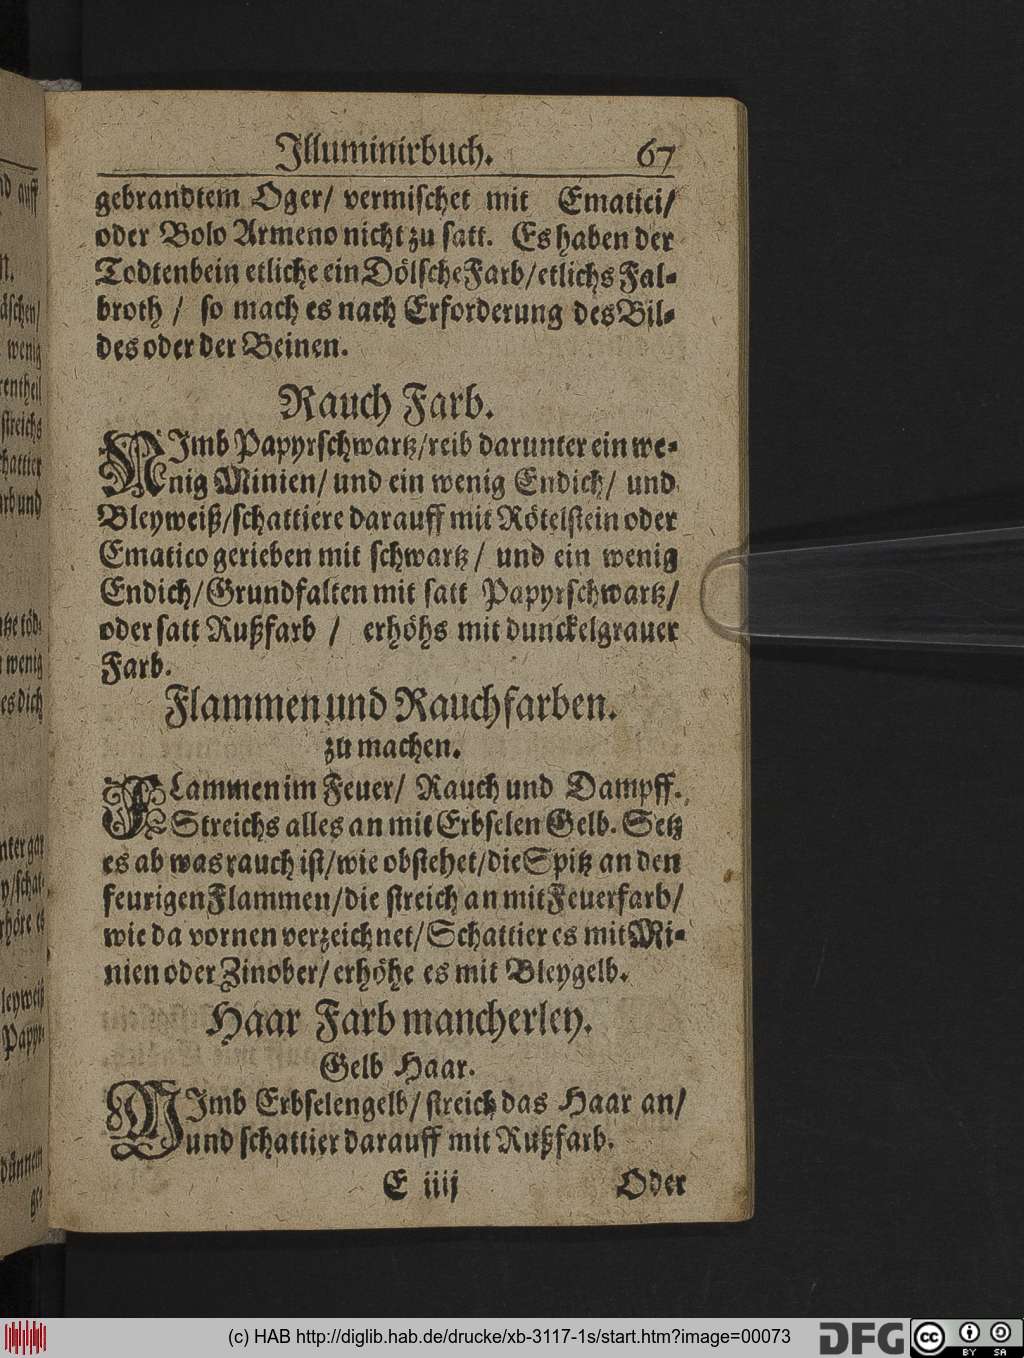 Illuminirbuch. 67
gebrandtem Oger/ vermischet mit Ematici/
oder Bolo Armeno nicht zu satt. Es haben der
Todtenbein etliche ein Dölsche Farb/etlichs Fal-
broth / so mach es nach Erforderung des Bil-
des oder der Beinen.
Rauch Farb.
NImb Papyrschwartz/reib darunter ein we-
nig Minien/ und ein wenig Endich/ und
Bleyweiß/schattiere darauff mit Rötelstein oder
Ematico gerieben mit schwartz/ und ein wenig
Endich/Grundfalten mit satt Papyrschwartz/
oder satt Rußfarb / erhöhs mit dunckelgrauer
Farb.
Flammen und Rauchfarben.
zu machen.
FLammen im Feuer/ Rauch und Dampff.
Streichs alles an mit Erbselen Gelb. Setz
es ab was rauch ist/wie obstehet/die Spitz an den
feurigen Flammen/die streich an mit Feuerfarb/
wie da vornen verzeichnet/Schattier es mit Mi-
nien oder Zinober/erhöhe es mit Bleygelb.
Haar Farb mancherley.
Gelb Haar.
NImb Erbselengelb/streich das Haar an/
und schattier darauff mit Rußfarb.
E iiij Oder
auff
äschen/
wenig
rentheil
streichs
hattier
rb und
wenig
es dich
nter gar
y/schat-
rhöre es
leyweiß
Papyr-
dünnem
ge-
(c) HAB http://diglib.hab.de/drucke/xb-3117-1s/start.htm?image=00073
DFG
cc
BY SA